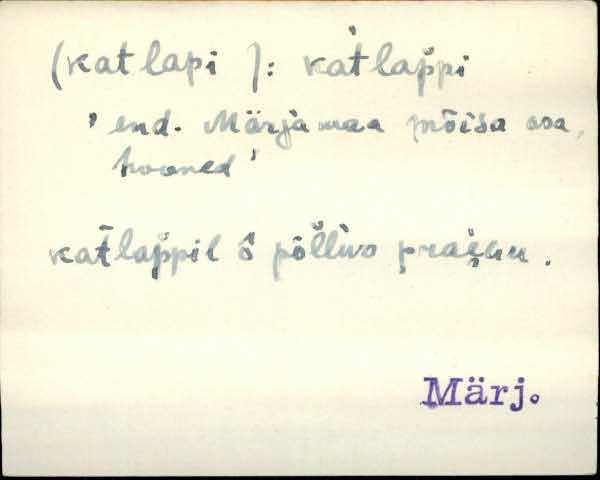 (katlapi ): kat̀lap̆pi
' end. Märjamaa mõisa osa,
hooned '
kat̄lap̆pil ō põl̆luo
Märj.